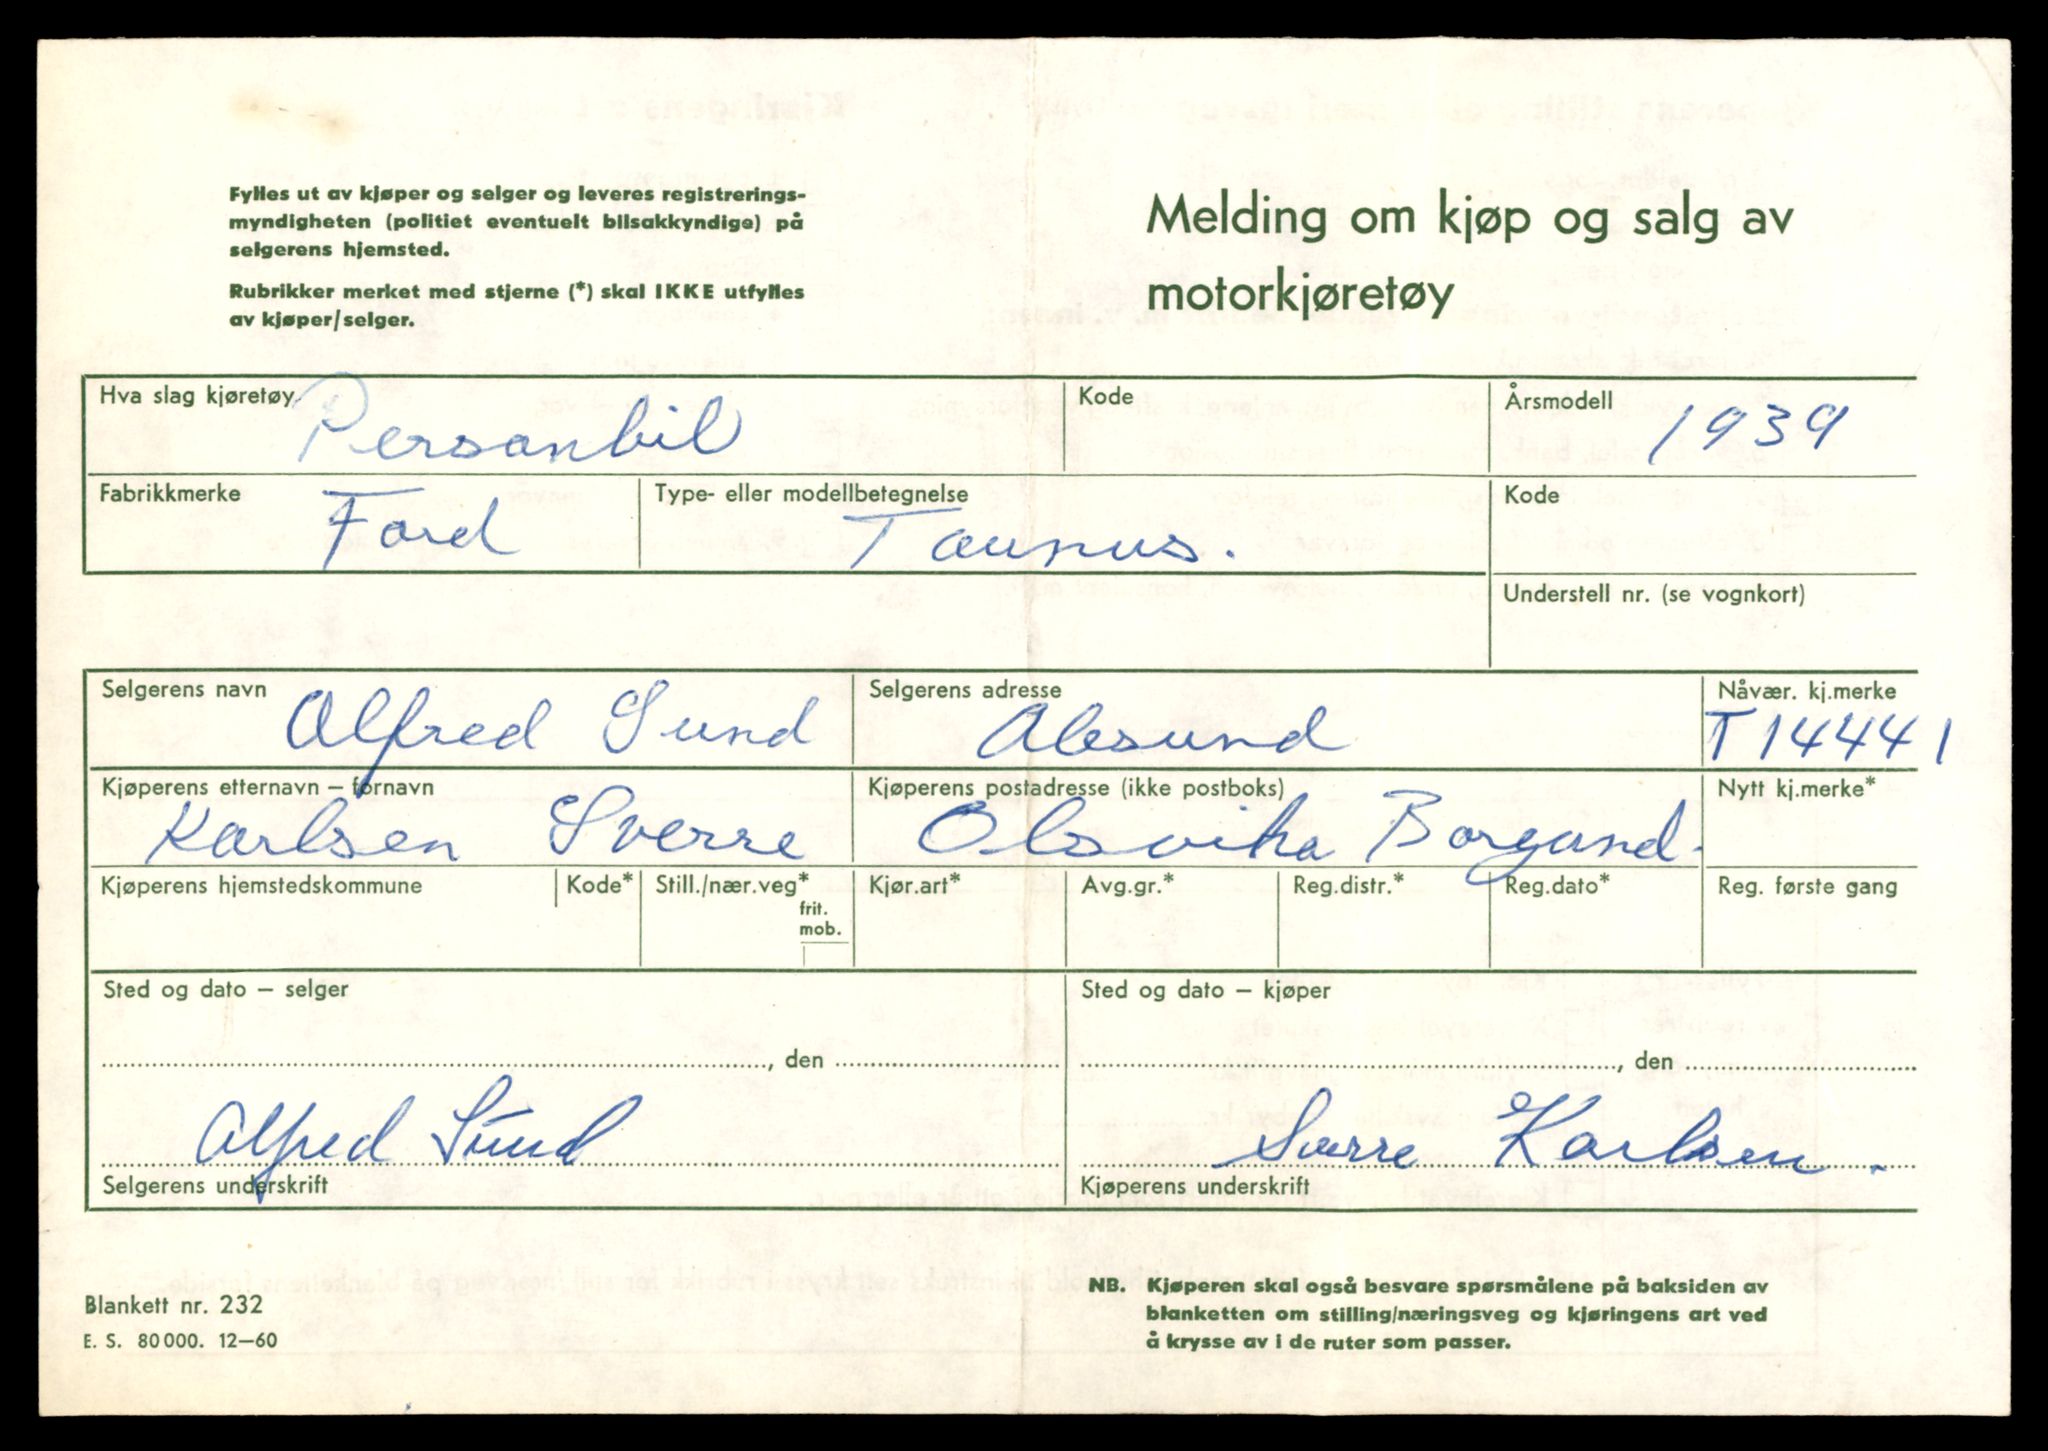 Fylles ut av kjøper og selger og leveres registrerings-
myndigheten (politiet eventuelt bilsakkyndige) på
selgerens hjemsted.
Rubrikker merket med stjerne (*) skal IKKE utfylles
av kjøper/selger.
Melding om kjøp og salg av
motorkjøretøy
Hva slag kjøretøy Personbil
Kode
Årsmodell 1939
Fabrikkmerke Ford
Type- eller modellbetegnelse Taunus.
Kode
Understell nr. (se vognkort)
Selgerens navn Alfred Sund
Selgerens adresse Alesund
Nåvær. kj.merke T14441
Kjøperens etternavn – fornavn Karlsen Sverre
Kjøperens postadresse (ikke postboks) Olsvika Borgund.
Nytt kj.merke*
Kjøperens hjemstedskommune
Kode*
Still./nær.veg*
frit.
mob.
Kjør.art*
Avg.gr.*
Reg.distr.*
Reg.dato*
Reg. første gang
Sted og dato – selger
, den
Alfred Sund
Selgerens underskrift
Sted og dato – kjøper
, den
Sverre Karlsen.
Kjøperens underskrift
Blankett nr. 232
E. S. 80000. 12–60
NB. Kjøperen skal også besvare spørsmålene på baksiden av
blanketten om stilling/næringsveg og kjøringens art ved
å krysse av i de ruter som passer.